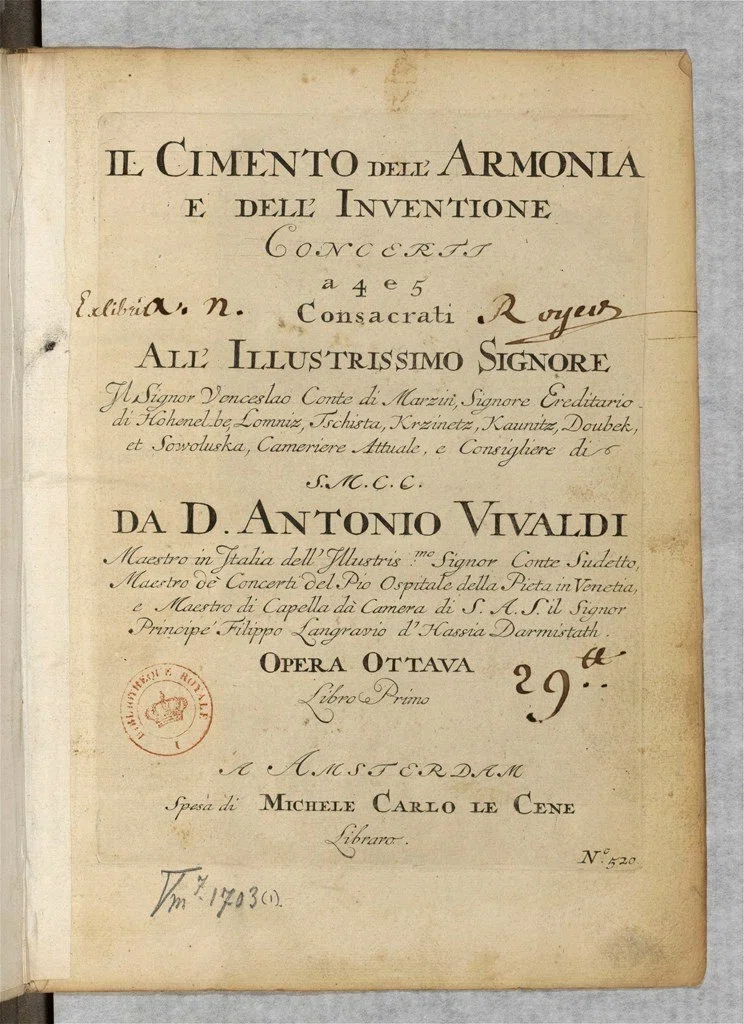 IL CIMENTO DELL' ARMONIA
E DELL' INVENTIONE
CONCERTI
a 4 e 5
Exlibris a. n. Consacrati Royer
ALL' ILLUSTRISSIMO SIGNORE
Il Signor Venceslao Conte di Marzin, Signore Ereditario
di Hohenelbe, Lomniz, Tschista, Krzinetz, Kaunitz, Doubek,
et Sowoluska, Cameriere Attuale, e Consigliere di
S.M.C.C.
DA D. ANTONIO VIVALDI
Maestro in Italia dell' Illustris.mo Signor Conte Sudetto,
Maestro de' Concerti del Pio Ospitale della Pieta in Venetia,
e Maestro di Capella dà Camera di S. A. S. il Signor
Principe Filippo Langravio d' Hassia Darmistath.
OPERA OTTAVA
29.tt
Libro Primo
BIBLIOTHEQUE ROYALE
I
A AMSTERDAM
Spesa di MICHELE CARLO LE CENE
Libraro.
No. 520
Vm 7. 1703 (1).